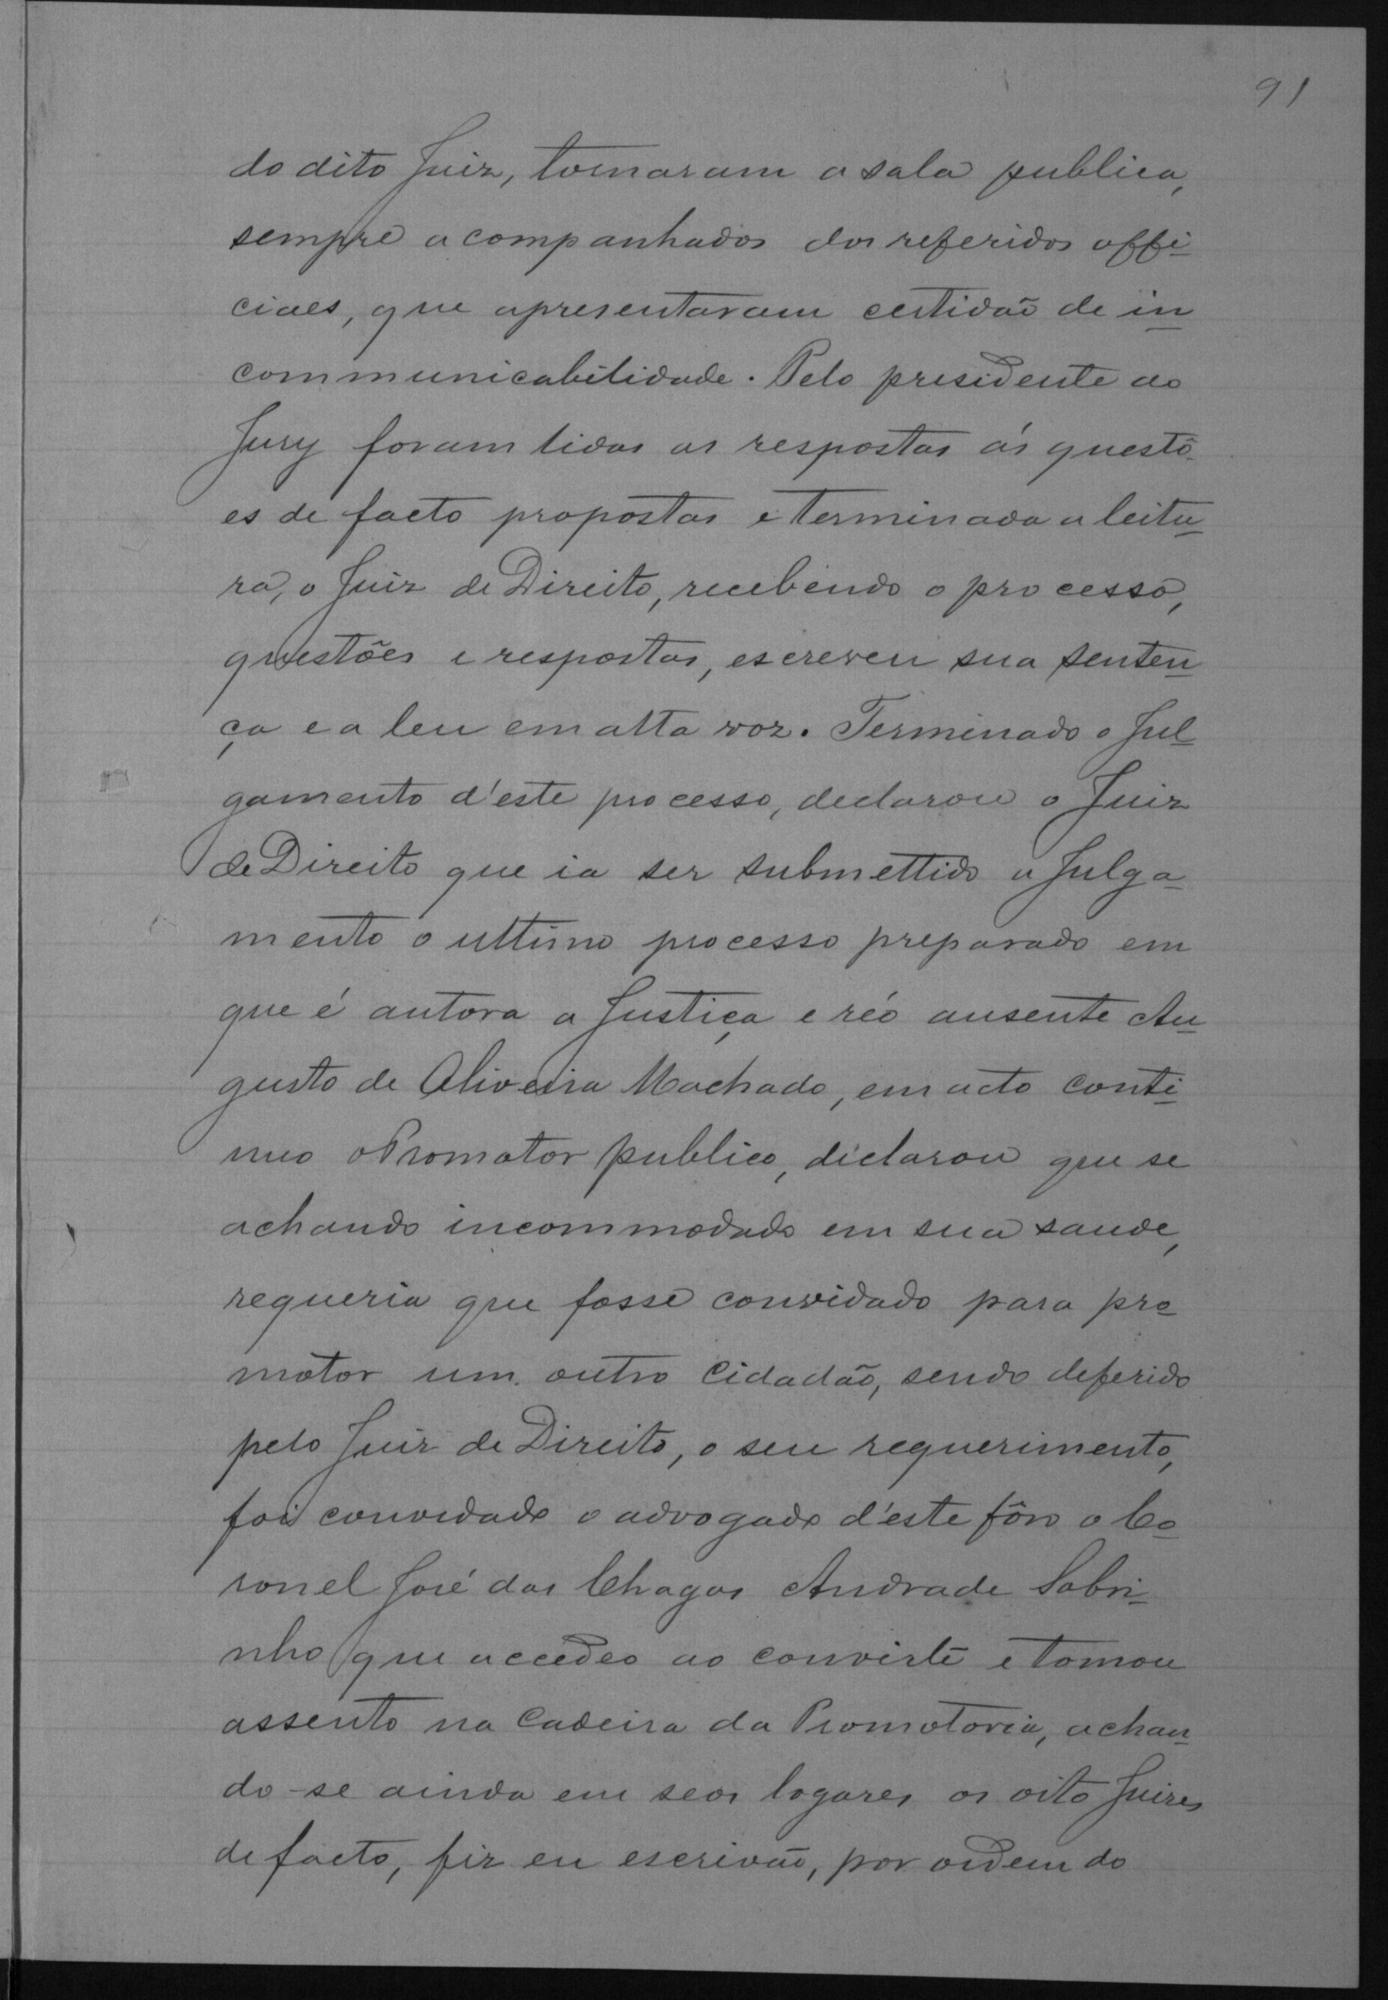 91
do dito Juiz, tornaram a sala publica,
sempre acompanhados dos referidos offi-
ciaes, que apresentaram certidão de in-
communicabilidade. Pelo presidente do
Jury foram lidas as respostas ás questõ-
es de facto propostas e terminada a leitu-
ra, o Juiz de Direito, recebendo o processo,
questões e respostas, escreveu sua senten-
ça e a leu em alta voz. Terminado o Jul-
gamento d'este processo, declarou o Juiz
de Direito que ia ser submettido a Julga-
mento o ultimo processo preparado em
que é autora a Justiça e réo ausente Au-
gusto de Oliveira Machado, em acto conti-
nuo o Promotor publico, declarou que se
achando incommodado em sua saude,
requeria que fosse convidado para pro-
motor um outro Cidadão, sendo deferido
pelo Juiz de Direito, o seu requerimento,
foi convidado o advogado d'este fôro o Co-
ronel José das Chagas Andrade Sobri-
nho que accedeo ao convite e tomou
assento na Cadeira da Promotoria, achan-
do-se ainda em seos logares os oito Juizes
de facto, fiz eu escrivão, por ordem do